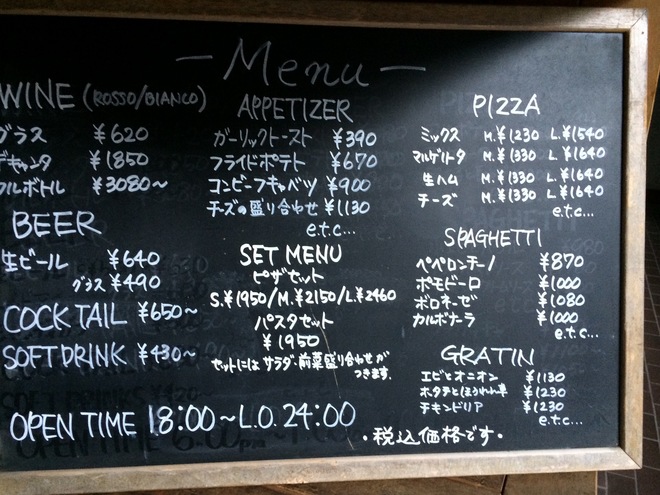 — Menu —
WINE (ROSSO/BIANCO)
グラス ¥620
デキャンタ ¥1850
フルボトル ¥3080~
BEER
生ビール ¥640
グラス ¥490
COCKTAIL ¥650~
SOFT DRINK ¥430~
APPETIZER
ガーリックトースト ¥390
フライドポテト ¥670
コンビーフキャベツ ¥900
チーズの盛り合わせ ¥1130
e.t.c...
SET MENU
ピザセット
S.¥1950/M.¥2150/L.¥2460
パスタセット
¥1950
セットにはサラダ・前菜盛り合わせが
つきます.
PIZZA
ミックス M.¥1230 L.¥1540
マルゲリータ M.¥1330 L.¥1640
生ハム M.¥1330 L.¥1640
チーズ M.¥1330 L.¥1640
e.t.c...
SPAGHETTI
ペペロンチーノ ¥870
ポモドーロ ¥1000
ボロネーゼ ¥1080
カルボナーラ ¥1000
e.t.c...
GRATIN
エビとオニオン ¥1130
ホタテとほうれん草 ¥1230
チキンドリア ¥1230
e.t.c...
OPEN TIME 18:00~L.O.24:00
・税込価格です・